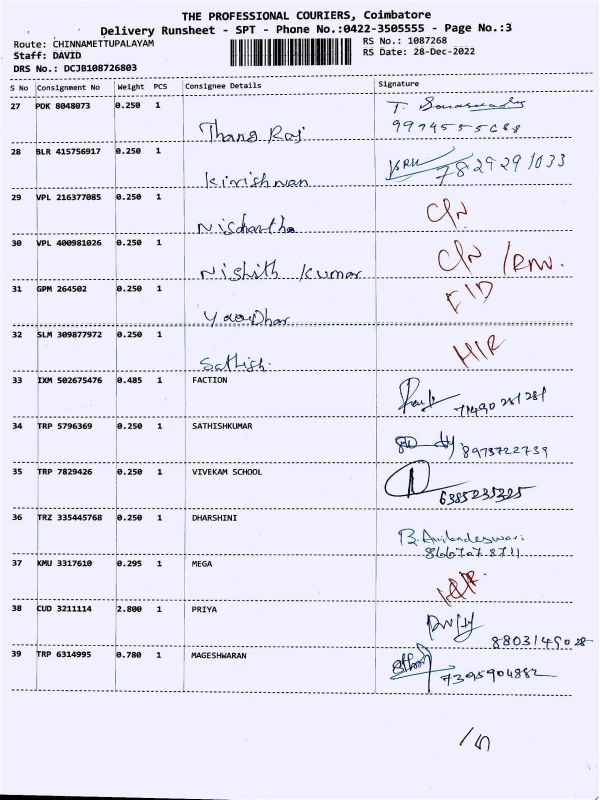 THE PROFESSIONAL COURIERS, Coimbatore
Delivery Runsheet - SPT - Phone No.:0422-3505555 - Page No.:3
Route: CHINNAMETTUPALAYAM
RS No.: 1087268
Staff: DAVID
RS Date: 28-Dec-2022
DRS No.: DCJB108726803
S No Consignment No Weight PCS Consignee Details Signature
27 PDK 8048073 0.250 1 Thang Raj
28 BLR 415756917 0.250 1 7829291033
29 VPL 216377085 0.250 1 C/N
30 VPL 400981026 0.250 1 Nishith Kumar C/N
31 GPM 264502 0.250 1
32 SLM 309877972 0.250 1 Sathish.
33 IXM 502675476 0.485 1 FACTION
34 TRP 5796369 0.250 1 SATHISHKUMAR 8973722739
35 TRP 7829426 0.250 1 VIVEKAM SCHOOL 6385235325
36 TRZ 335445768 0.250 1 DHARSHINI
37 KMU 3317610 0.295 1 MEGA
38 CUD 3211114 2.800 1 PRIYA 8803149028
39 TRP 6314995 0.780 1 MAGESHWARAN 7395904882